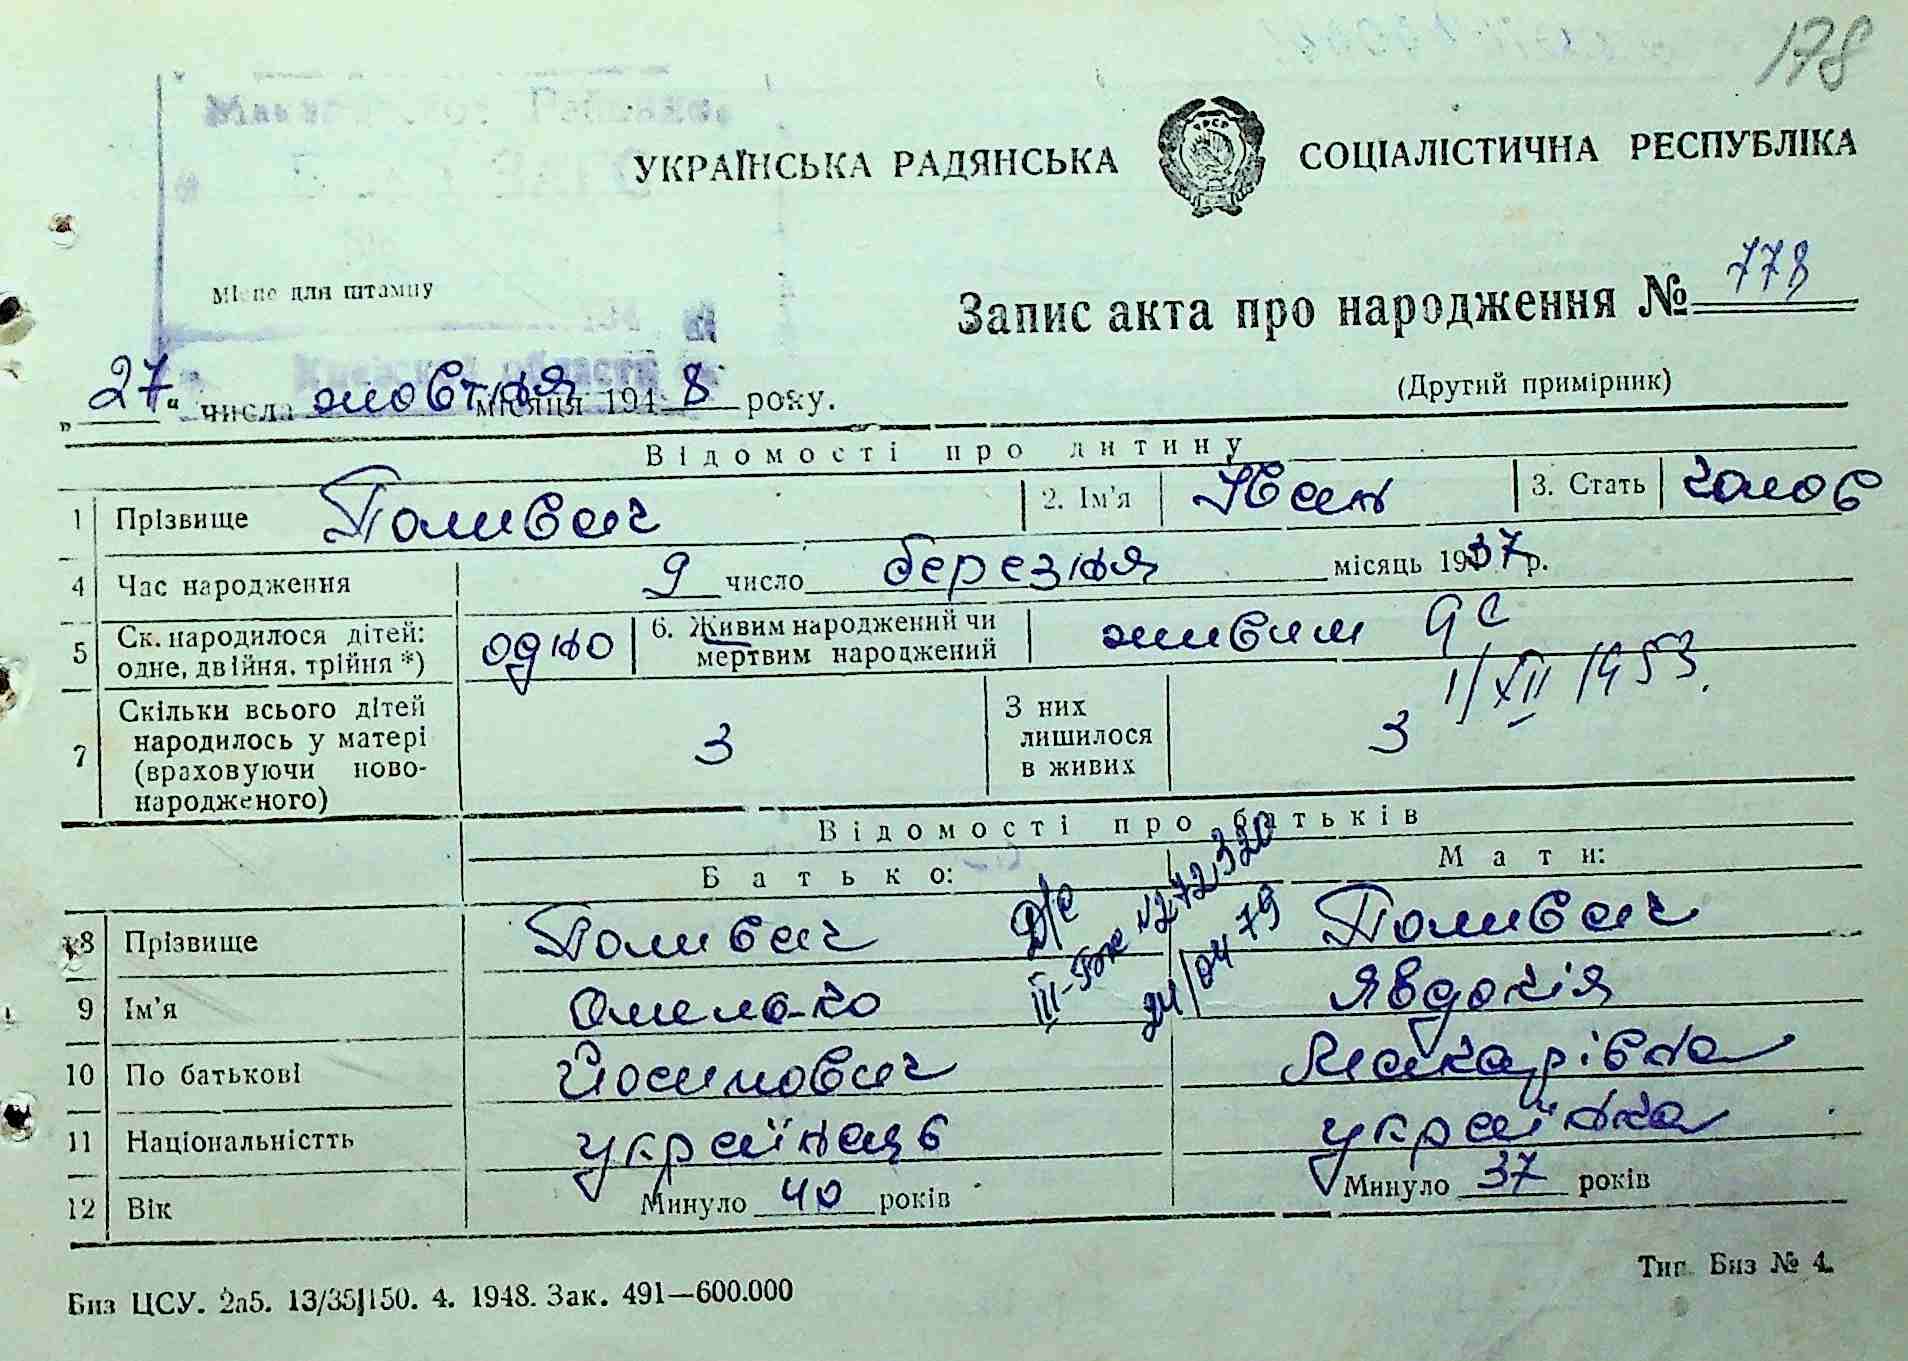 178
УКРАЇНСЬКА РАДЯНСЬКА СОЦІАЛІСТИЧНА РЕСПУБЛІКА
УРСР
Місце для штампу
Запис акта про народження № 778
Киевской области
(Другий примірник)
„27“ числа жовтня місяця 1948 року.
Відомості про дитину
1 Прізвище Поливач 2. Ім'я Іван 3. Стать чолов
4 Час народження 9 число березня місяць 1937 р.
5 Ск. народилося дітей: одно 6. Живим народжений чи живим ЧС
одне, двійня, трійня *) мертвим народжений
1/XII 1953.
7 Скільки всього дітей 3 З них 3
народилось у матері лишилося
(враховуючи ново- в живих
народженого)
Відомості про батьків
Батько: Мати:
8 Прізвище Поливач Поливач
9 Ім'я Омелько Явдокія
10 По батькові Йосипович Макарівна
11 Національністть українець українка
12 Вік Минуло 40 років Минуло 37 років
III- № 272320
24/04 79
Биз ЦСУ. 2а5. 13/35 150. 4. 1948. Зак. 491—600.000
Тип. Биз № 4.